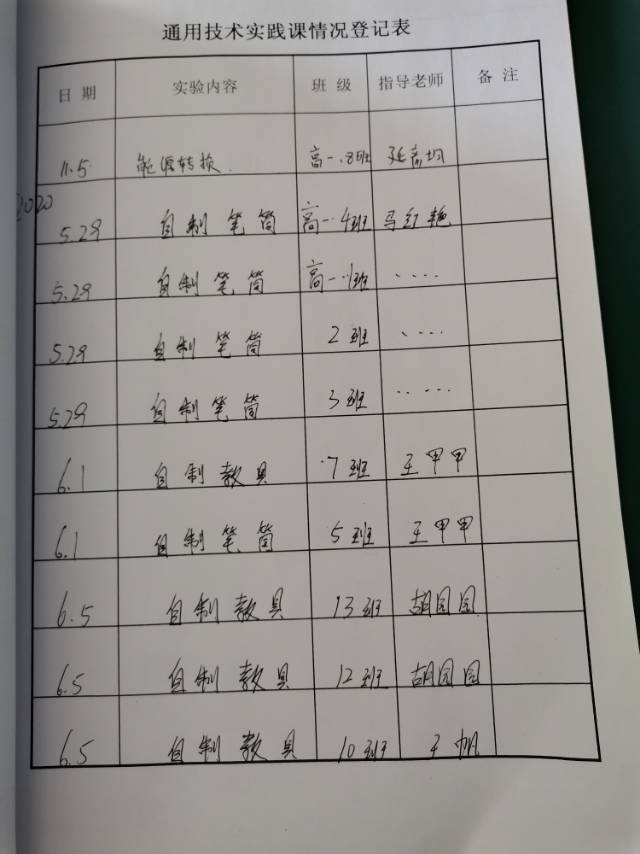 通用技术实践课情况登记表
日期 实验内容 班级 指导老师 备注
11.5 能源转换 高一.8班
2020
5.29 自制笔筒 高一.4班 马红艳
5.29 自制笔筒 高一.1班 ....
5.29 自制笔筒 2班 ....
5.29 自制笔筒 3班 ....
6.1 自制教具 .7班 王甲甲
6.1 自制笔筒 5班 王甲甲
6.5 自制教具 13班 胡园园
6.5 自制教具 12班 胡园园
6.5 自制教具 10班 王帆